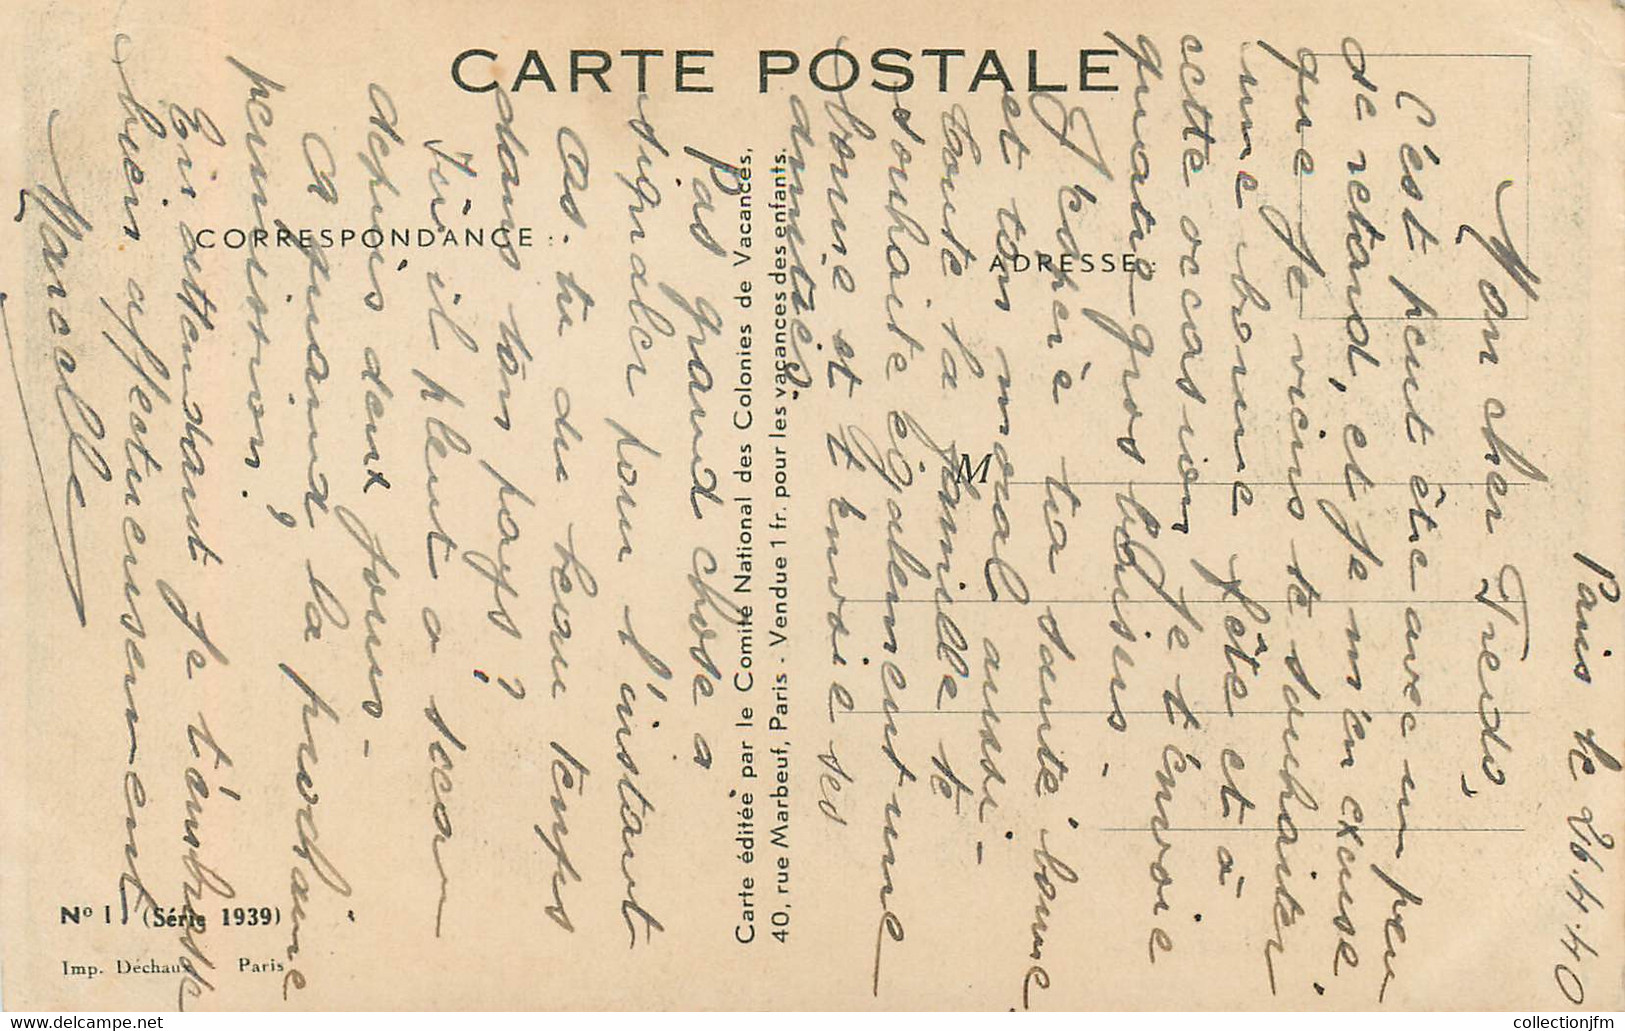 CARTE POSTALE
CORRESPONDANCE :
ADRESSE :
M
Carte éditée par le Comité National des Colonies de Vacances,
40, rue Marbeuf, Paris - Vendue 1 fr. pour les vacances des enfants.
N° 1 (Série 1939)
Imp. Déchaux Paris
Paris le 26.4.40
Mon cher Fredo,
C'est peut être avec un peu
de retard, et je m'en excuse,
que je viens te souhaiter
une bonne fête et à
cette occasion je t'envoie
quatre gros baisers.
J'espère ta santé bonne,
et ton moral aussi -
toute la famille te
souhaite également une
bonne et t'envoie ses
amitiés.
Pas grand chose a
signaler pour l'instant
As-tu du beau temps
dans ton pays ?
Ici il pleut a seau
depuis deux jours -
A quand, la prochaine
permission ?
En attendant je t'embrasse
bien affectueusement
Marcelle
collectionjfm